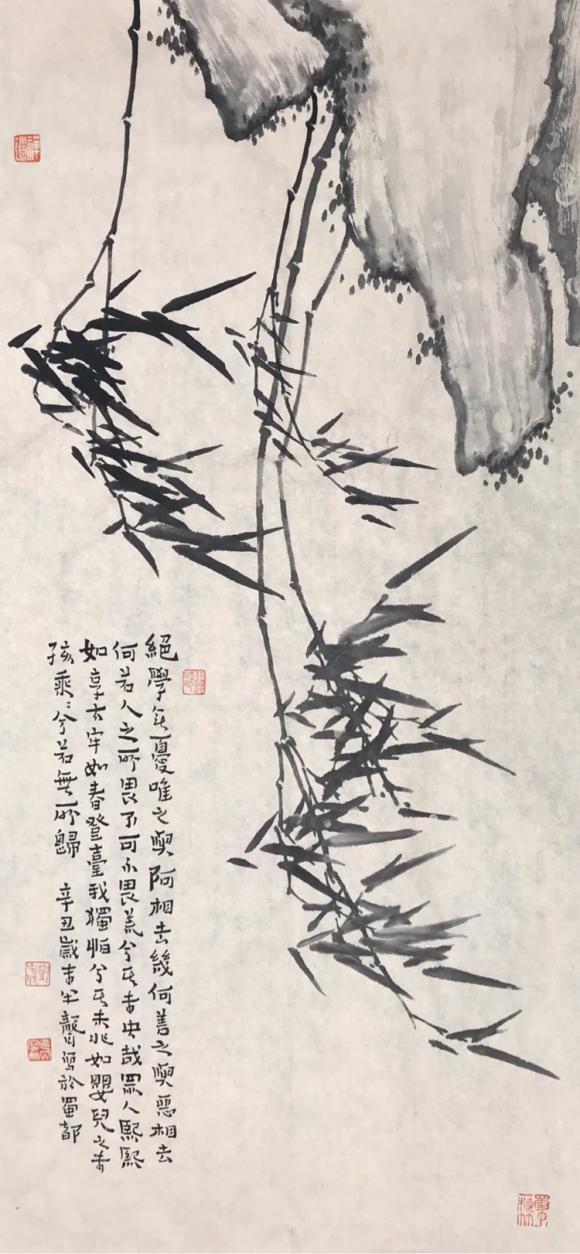 絕學无憂唯之與阿相去幾何善之與惡相去
何若人之所畏不可不畏荒兮其未央哉眾人熙熙
如享太牢如春登臺我獨怕兮其未兆如嬰兒之未
孩乘乘兮若無所歸 辛丑歲末半聾寫於蜀都